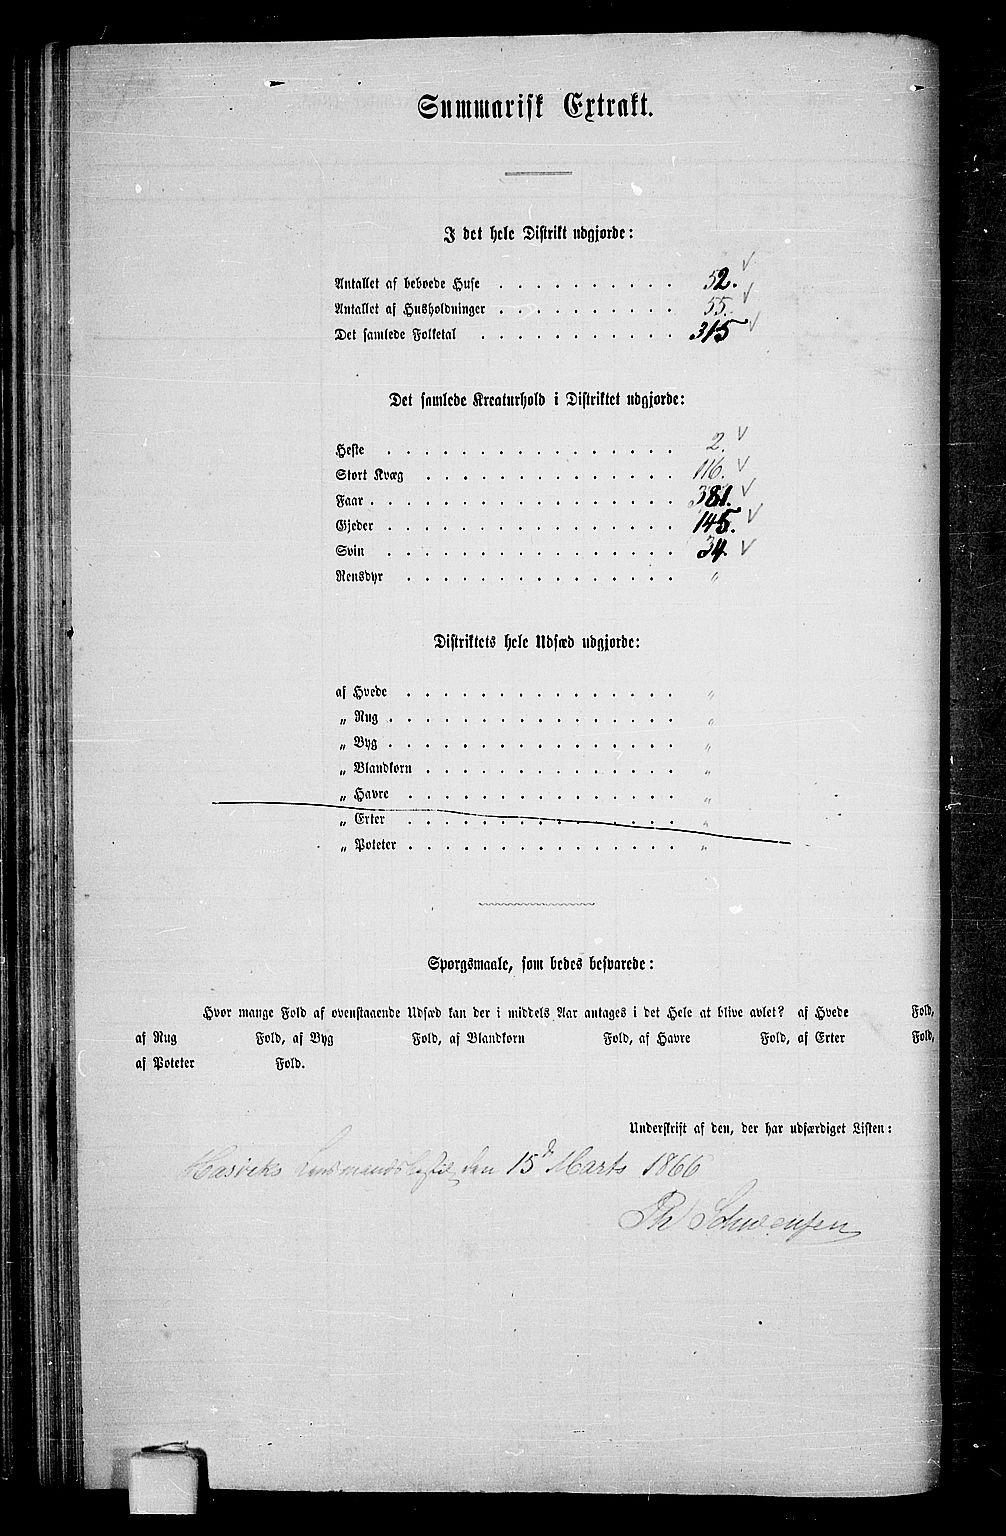 Summarisk Extrakt.
I det hele Distrikt udgjorde:
Antallet af beboede Huse . . . . . . . . . . 52. ✓
Antallet af Husholdninger . . . . . . . . . . 55. ✓
Det samlede Folketal . . . . . . . . . . . 315 ✓
Det samlede Kreaturhold i Distriktet udgjorde:
Heste . . . . . . . . . . . . . . . . 2. ✓
Stort Kvæg . . . . . . . . . . . . . . 116. ✓
Faar . . . . . . . . . . . . . . . . . 381. ✓
Gjeder . . . . . . . . . . . . . . . . 145. ✓
Svin . . . . . . . . . . . . . . . . 34. ✓
Rensdyr . . . . . . . . . . . . . . . "
Distriktets hele Udsæd udgjorde:
af Hvede . . . . . . . . . . . . . . . "
„ Rug . . . . . . . . . . . . . . . . "
„ Byg . . . . . . . . . . . . . . . . "
„ Blandkorn . . . . . . . . . . . . . . "
„ Havre . . . . . . . . . . . . . . . "
„ Erter . . . . . . . . . . . . . . . "
„ Poteter . . . . . . . . . . . . . . . "
Spørgsmaale, som bedes besvarede:
Hvor mange Fold af ovenstaaende Udsæd kan der i middels Aar antages i det Hele at blive avlet? af Hvede Fold,
af Rug Fold, af Byg Fold, af Blandkorn Fold, af Havre Fold, af Erter Fold,
af Poteter Fold.
Underskrift af den, der har udfærdiget Listen:
Hasviks den 15d Marts 1866